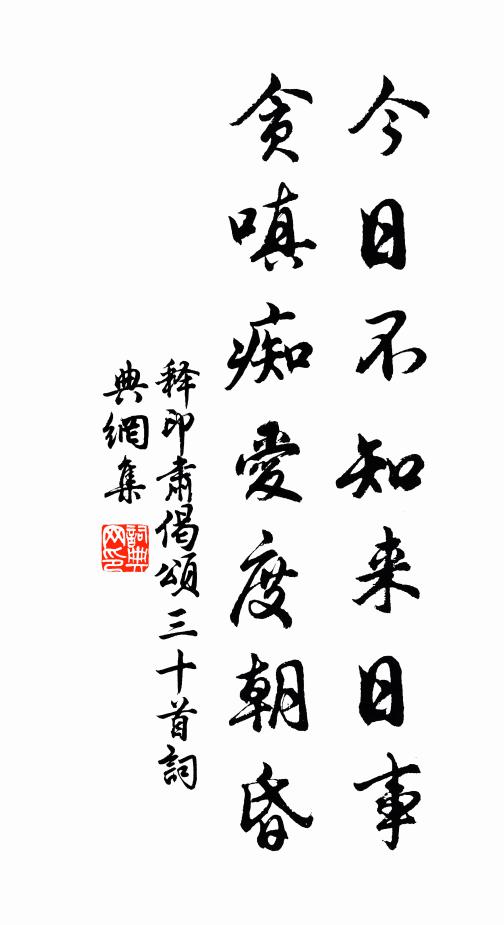 今日不知来日事
貪嗔痴愛度朝昏
释印肃偈頌三十首詞
典網集
詞典网印